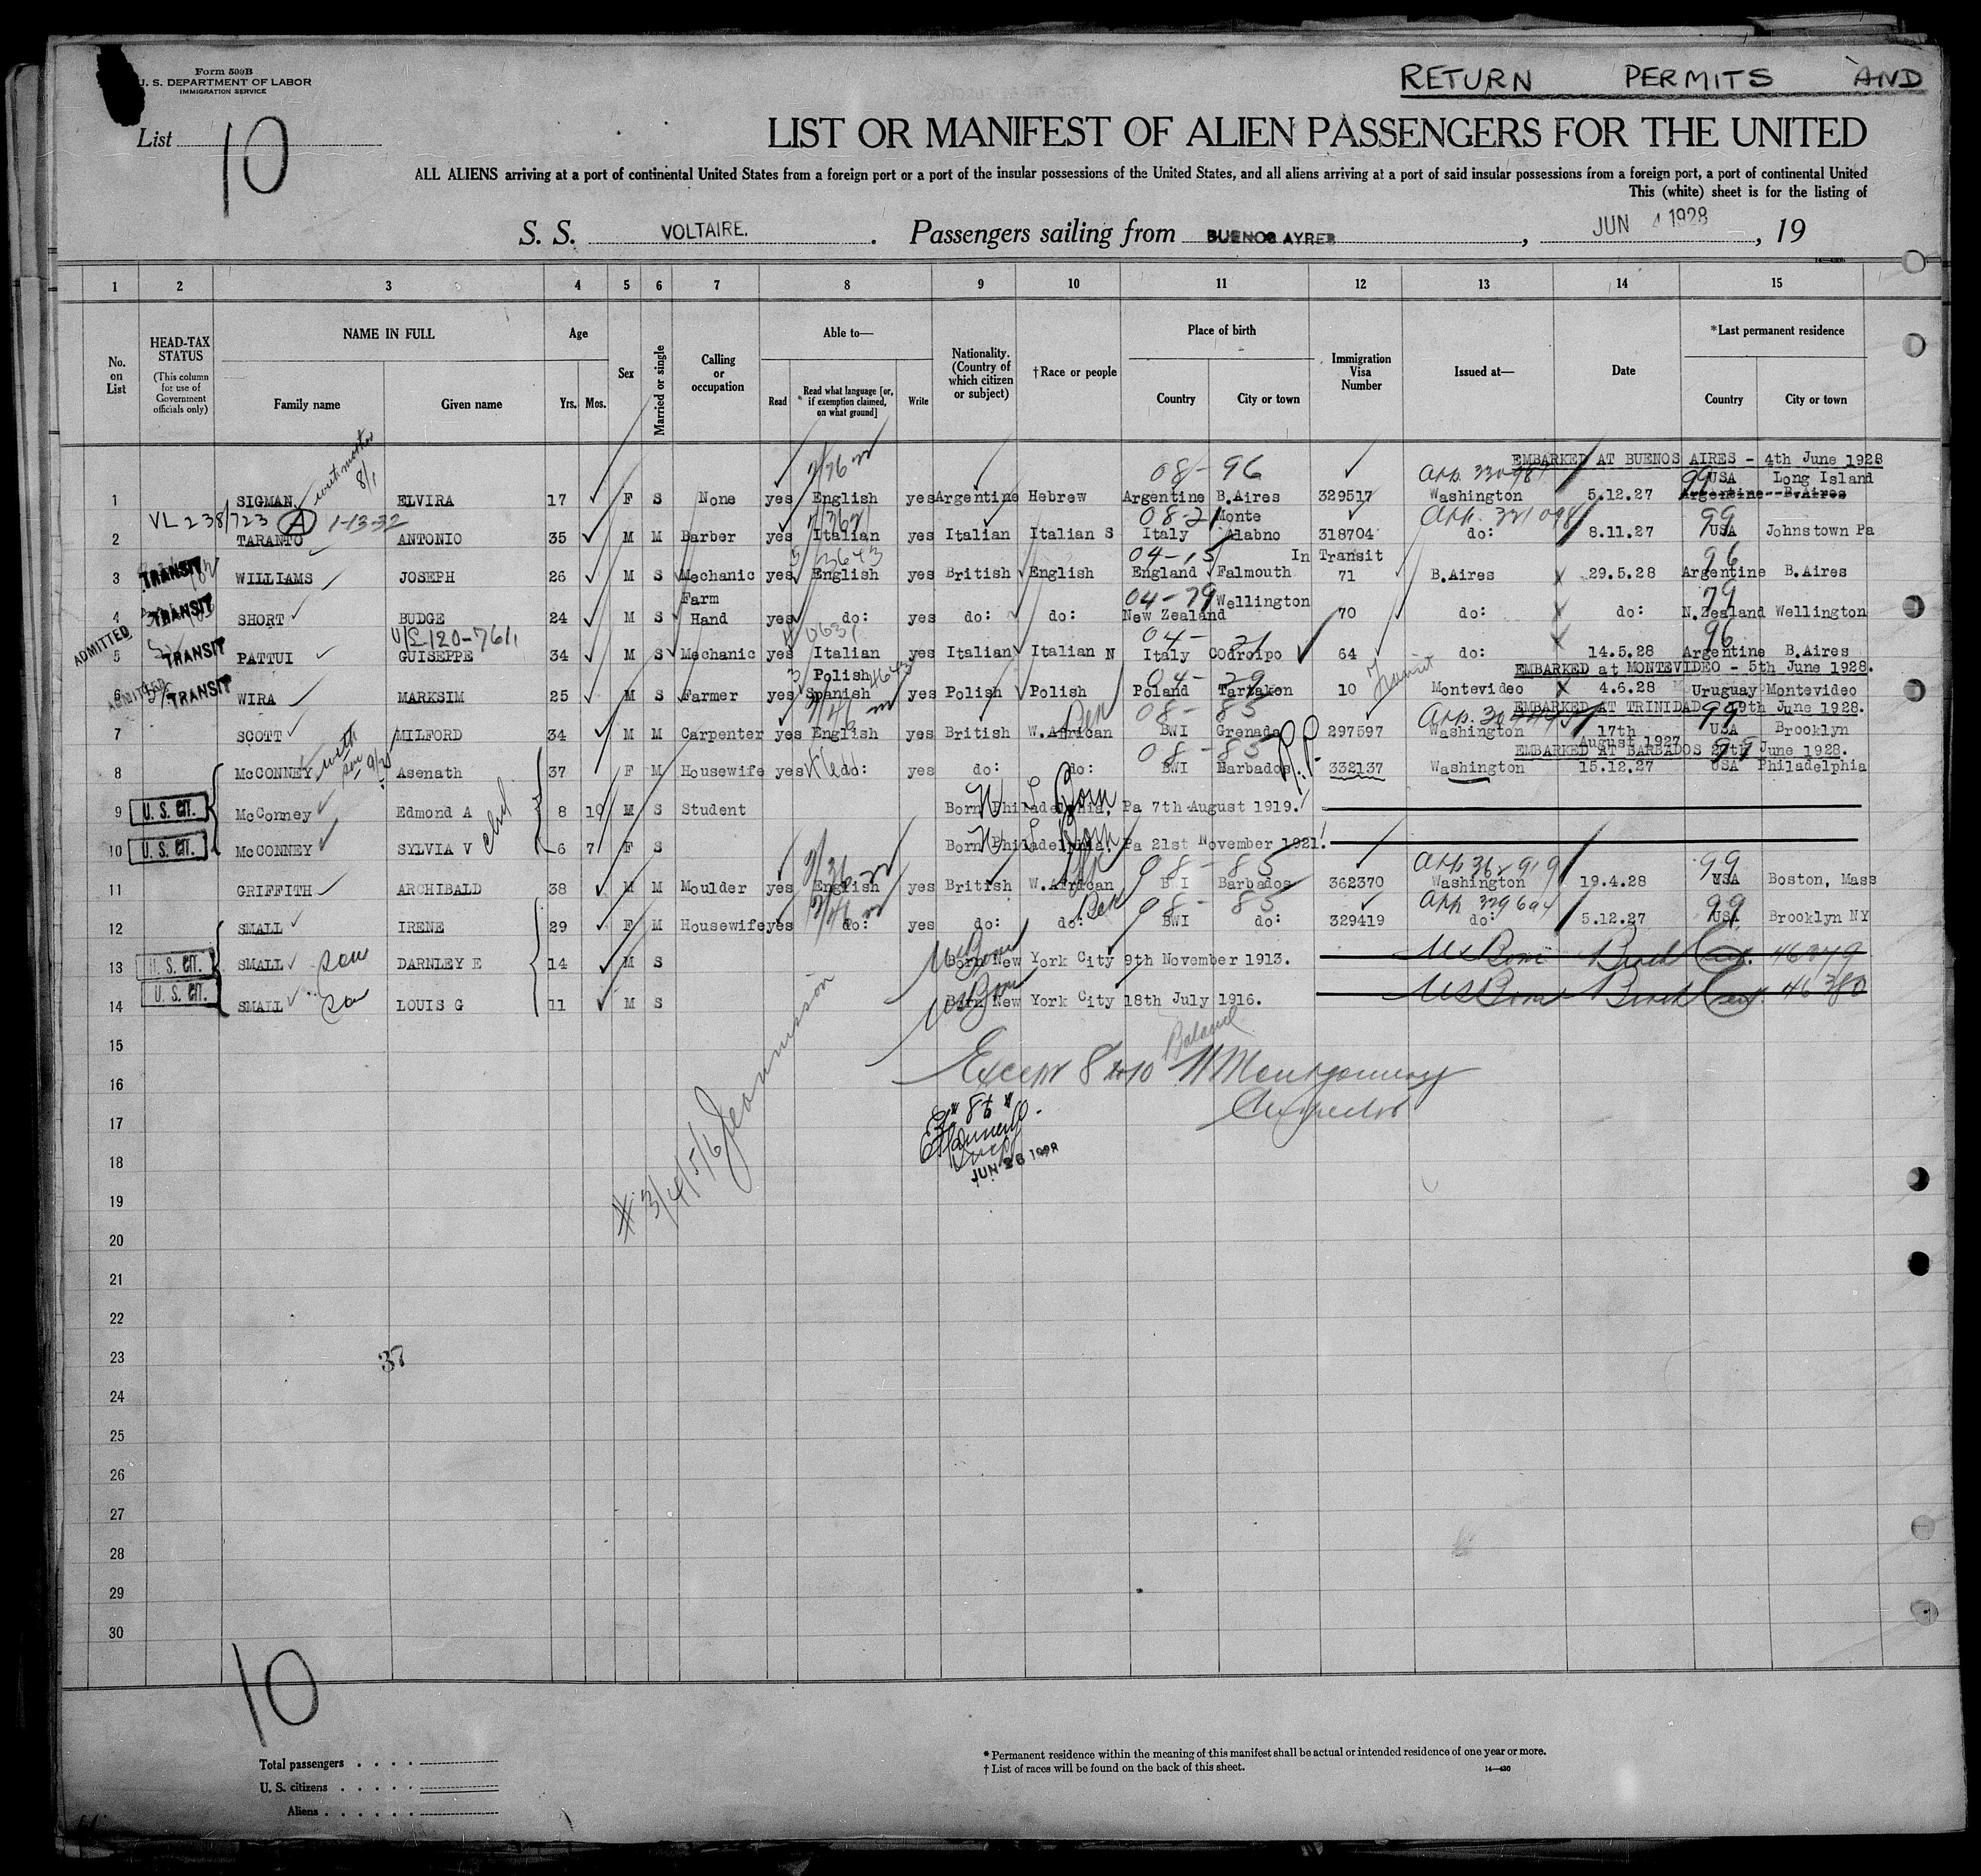 RETURN PERMITS AND
Form 509B
U. S. DEPARTMENT OF LABOR
IMMIGRATION SERVICE
List 10
LIST OR MANIFEST OF ALIEN PASSENGERS FOR THE UNITED
ALL ALIENS arriving at a port of continental United States from a foreign port or a port of the insular possessions of the United States, and all aliens arriving at a port of said insular possessions from a foreign port, a port of continental United
This (white) sheet is for the listing of
S. S. VOLTAIRE. Passengers sailing from BUENOS AYRES, JUN 4 1928, 19
1 2 3 4 5 6 7 8 9 10 11 12 13 14 15
No. on List
HEAD-TAX STATUS (This column for use of Government officials only)
NAME IN FULL Family name Given name
Age Yrs. Mos.
Sex
Married or single
Calling or occupation
Able to— Read Read what language [or, if exemption claimed, on what ground] Write
Nationality. (Country of which citizen or subject)
†Race or people
Place of birth Country City or town
Immigration Visa Number
Issued at—
Date
*Last permanent residence Country City or town
EMBARKED AT BUENOS AIRES - 4th June 1928
with mother 8/1
08-96 99 USA Long Island
1 SIGMAN ELVIRA 17 F S None yes English yes Argentine Hebrew Argentine B.Aires 329517 Washington 5.12.27 Argentine--B.Aires
VL 238/723 A 1-13-32 08-21 Monte 99
2 TARANTO ANTONIO 35 M M Barber yes Italian yes Italian Italian S Italy Alabno 318704 do: 8.11.27 USA Johnstown Pa
04-15 In Transit 96
3 TRANSIT WILLIAMS JOSEPH 26 M S Mechanic yes English yes British English England Falmouth 71 B.Aires 29.5.28 Argentine B.Aires
Farm 04-79 Wellington 79
4 TRANSIT SHORT BUDGE 24 M S Hand yes do: yes do: do: New Zealand 70 do: do: N.Zealand Wellington
ADMITTED 04-21 96
5 TRANSIT PATTUI GUISEPPE 34 M S Mechanic yes Italian yes Italian Italian N Italy COdroipo 64 do: 14.5.28 Argentine B.Aires
EMBARKED at MONTEVIDEO - 5th June 1928.
Polish 04-29 Transit
6 TRANSIT WIRA MARKSIM 25 M S Farmer yes Spanish yes Polish Polish Poland Tartakon 10 Montevideo 4.6.28 Uruguay Montevideo
EMBARKED AT TRINIDAD - 19th June 1928.
08-85 99
7 SCOTT MILFORD 34 M M Carpenter yes English yes British W.African BWI Grenada 297597 Washington 17th August 1927 USA Brooklyn
EMBARKED AT BARBADOS 20th June 1928.
08-85 P.P.
8 McCONNEY Asenath 37 F M Housewife yes do: yes do: do: BWI Barbados 332137 Washington 15.12.27 USA Philadelphia
9 U. S. CIT. McConney Edmond A 8 10 M S Student Born Philadelphia, Pa 7th August 1919.
10 U. S. CIT. McCONNEY SYLVIA V 6 7 F S Born Philadelphia, Pa 21st November 1921.
08-85 99
11 GRIFFITH ARCHIBALD 38 M M Moulder yes English yes British W.African BWI Barbados 362370 Washington 19.4.28 USA Boston, Mass
08-85 99
12 SMALL IRENE 29 F M Housewife yes do: yes do: do: BWI do: 329419 do: 5.12.27 USA Brooklyn NY
13 U. S. CIT. SMALL son DARNLEY E 14 M S US Born Born New York City 9th November 1913. US Born Birth Cert. 46379
14 U. S. CIT. SMALL son LOUIS G 11 M S US Born Born New York City 18th July 1916. US Born Birth Cert. 46380
15
16 Except 8 to 10 Montgomery
17 Inspector
18 JUN 26 1928
# 3/4/5/6 Jeannisson
19
20
21
22
23 37
24
25
26
27
28
29
30
10
Total passengers
U. S. citizens
Aliens
* Permanent residence within the meaning of this manifest shall be actual or intended residence of one year or more.
† List of races will be found on the back of this sheet.
14—430